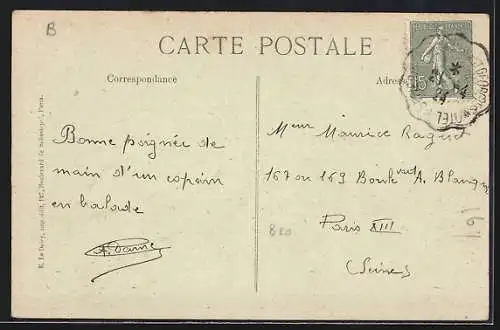 B
CARTE POSTALE
Correspondance
Adresse
15
Bonne poignée de
main d'un copain
en balade
Meur Maurice
167 ou 169 Boulevard A. Blanqui
Paris XIII
(Seine)
E. Le Deley, imp.-édit., 127, Boulevard de Sébastopol, Paris.